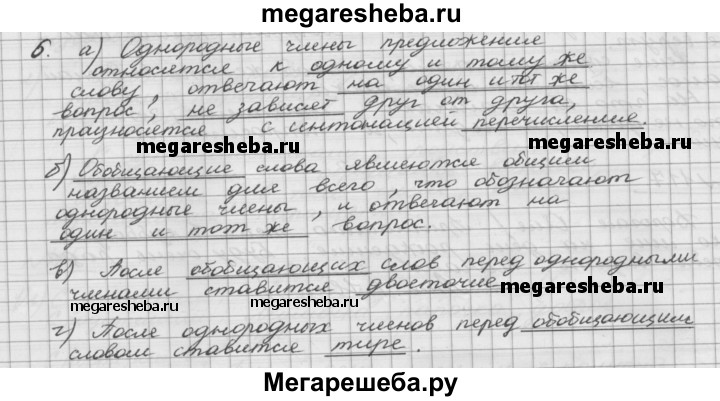 megaresheba.ru
6. а) Однородные члены предложения
относятся к одному и тому же
слову, отвечают на один и тот же
вопрос, не зависят друг от друга,
празносятся с интонацией перечисления.
megaresheba.ru megaresheba.ru
б) Обобщающие слова являются общием
названием для всего, что обозначают
однородные члены, и отвечают на
один и тот же вопрос.
в) После обобщающих слов перед однородными
членами ставится двоеточие
megaresheba.ru megaresheba.ru megaresheba.ru
г) После однородных членов перед обобщающим
словом ставится тире.
Мегарешеба.ру